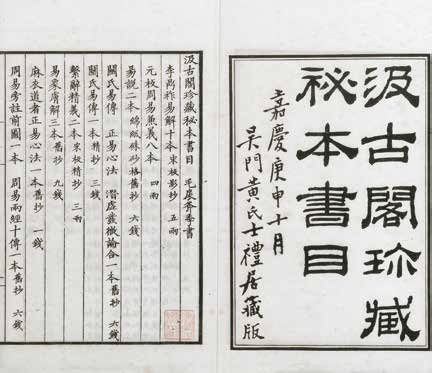 汲古閣珍藏
祕本書目
嘉慶庚申十月
吳門黃氏士禮居藏版
汲古閣珍藏秘本書目 毛扆斧季書
李鼎祚易解十本宋板影抄 五兩
元板周易兼義八本 四兩
易說二本綿紙硃砂格舊抄 六錢
關氏易傳 正易心法 潛虛發微論合一本舊抄 六錢
關氏易傳一本精抄 三錢
繫辭精義二本宋板精抄 三兩
易象膚解三本舊抄 九錢
麻衣道者正易心法一本舊抄 一錢
周易旁註前圖一本 周易兩經十傳一本舊抄 六錢